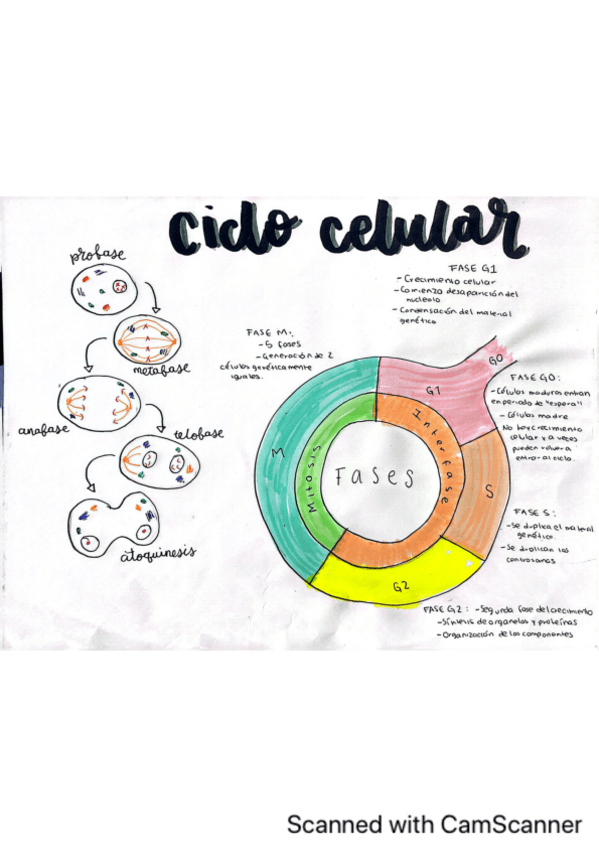 ciclo celular
profase
metafase
anafase
telofase
citoquinesis
FASE M:
- 5 fases
- Generación de 2
células genéticamente
iguales.
FASE G1
- Crecimiento celular
- Comienza desaparición del
nucleolo
- Condensación del material
genético
FASE G0:
- Células maduras entran
en periodo de "espera"
- Células madre
No hay crecimiento
celular y a veces
pueden volver a
entrar al ciclo.
FASE S:
- Se duplica el material
genético.
- Se duplican los
centrosomas
FASE G2: - Segunda fase del crecimiento
- Síntesis de organelos y proteínas
- Organización de los componentes
G0
G1
S
G2
M
Interfase
Mitosis
Fases
Scanned with CamScanner